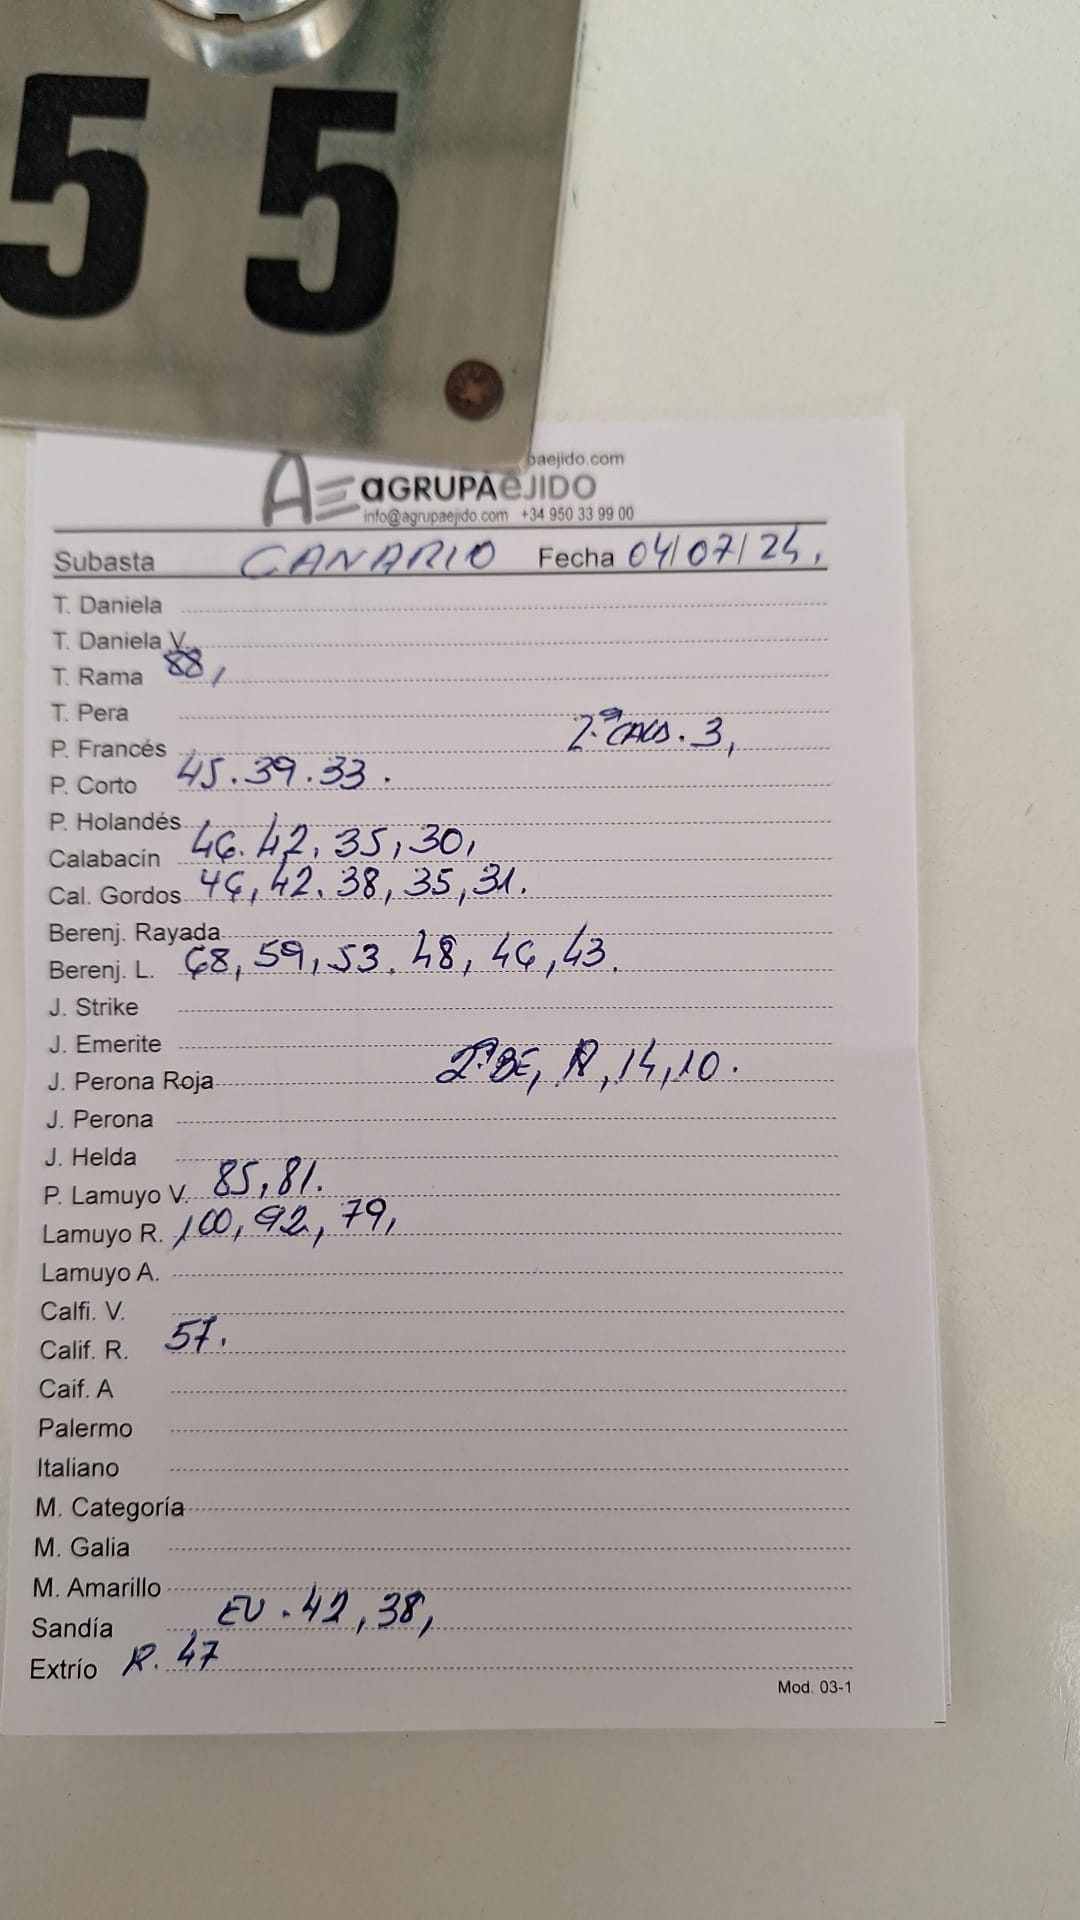 55
paejido.com
AE aGRUPAeJIDO
info@agrupaejido.com +34 950 33 99 00
Subasta CANARIO Fecha 04/07/24,
T. Daniela
T. Daniela V.
T. Rama 88,
T. Pera
P. Francés 2ª CALD. 3,
P. Corto 45.39.33.
P. Holandés
Calabacín 46.42,35,30,
Cal. Gordos 46,42.38,35,31.
Berenj. Rayada
Berenj. L. 68,59,53.48,46,43.
J. Strike
J. Emerite
J. Perona Roja 2ª BE, 14,10.
J. Perona
J. Helda
P. Lamuyo V. 85,81.
Lamuyo R. 100,92,79,
Lamuyo A.
Calfi. V.
Calif. R. 57.
Caif. A
Palermo
Italiano
M. Categoría
M. Galia
M. Amarillo
Sandía EU.42,38,
Extrío R. 47
Mod. 03-1